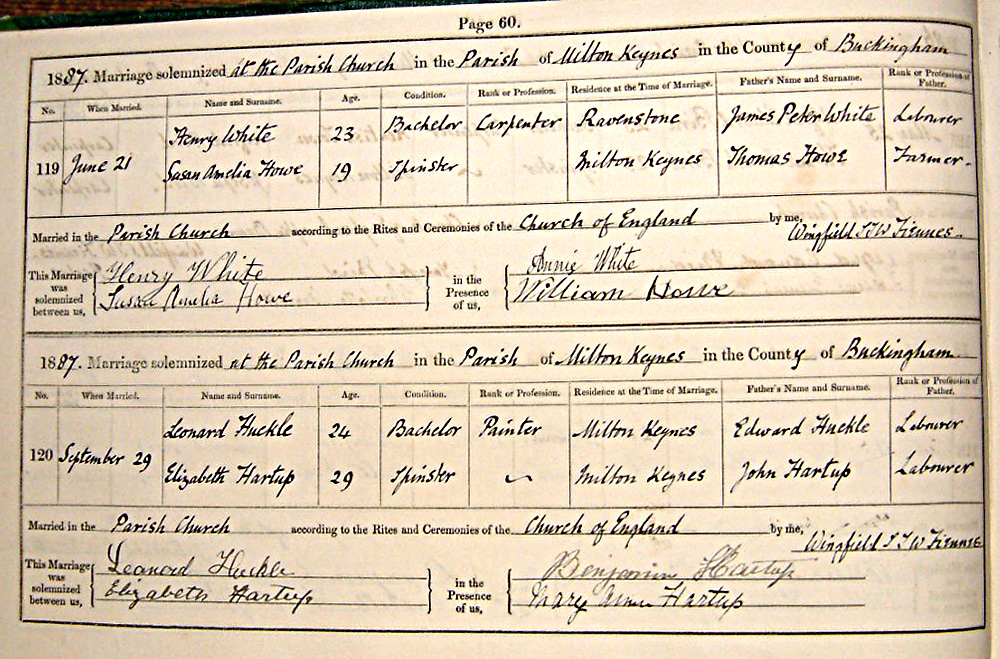 Page 60.
1887. Marriage solemnized at the Parish Church in the Parish of Milton Keynes in the County of Buckingham
No. When Married. Name and Surname. Age. Condition. Rank or Profession. Residence at the Time of Marriage. Father's Name and Surname. Rank or Profession of Father.
Henry White 23 Bachelor Carpenter Ravenstone James Peter White Labourer
119 June 21 Susan Amelia Howe 19 Spinster Milton Keynes Thomas Howe Farmer.
Married in the Parish Church according to the Rites and Ceremonies of the Church of England by me, Wingfield S T W Fiennes.
This Marriage was solemnized between us, Henry White in the Presence of us, Annie White
Susan Amelia Howe William Howe
1887. Marriage solemnized at the Parish Church in the Parish of Milton Keynes in the County of Buckingham
No. When Married. Name and Surname. Age. Condition. Rank or Profession. Residence at the Time of Marriage. Father's Name and Surname. Rank or Profession of Father.
Leonard Huckle 24 Bachelor Painter Milton Keynes Edward Huckle Labourer
120 September 29 Elizabeth Hartup 29 Spinster Milton Keynes John Hartup Labourer
Married in the Parish Church according to the Rites and Ceremonies of the Church of England by me, Wingfield S T W Fiennes
This Marriage was solemnized between us, Leanord Huckle in the Presence of us, Benjamin Hartup
Elizabeth Hartup Mary Ann Hartup